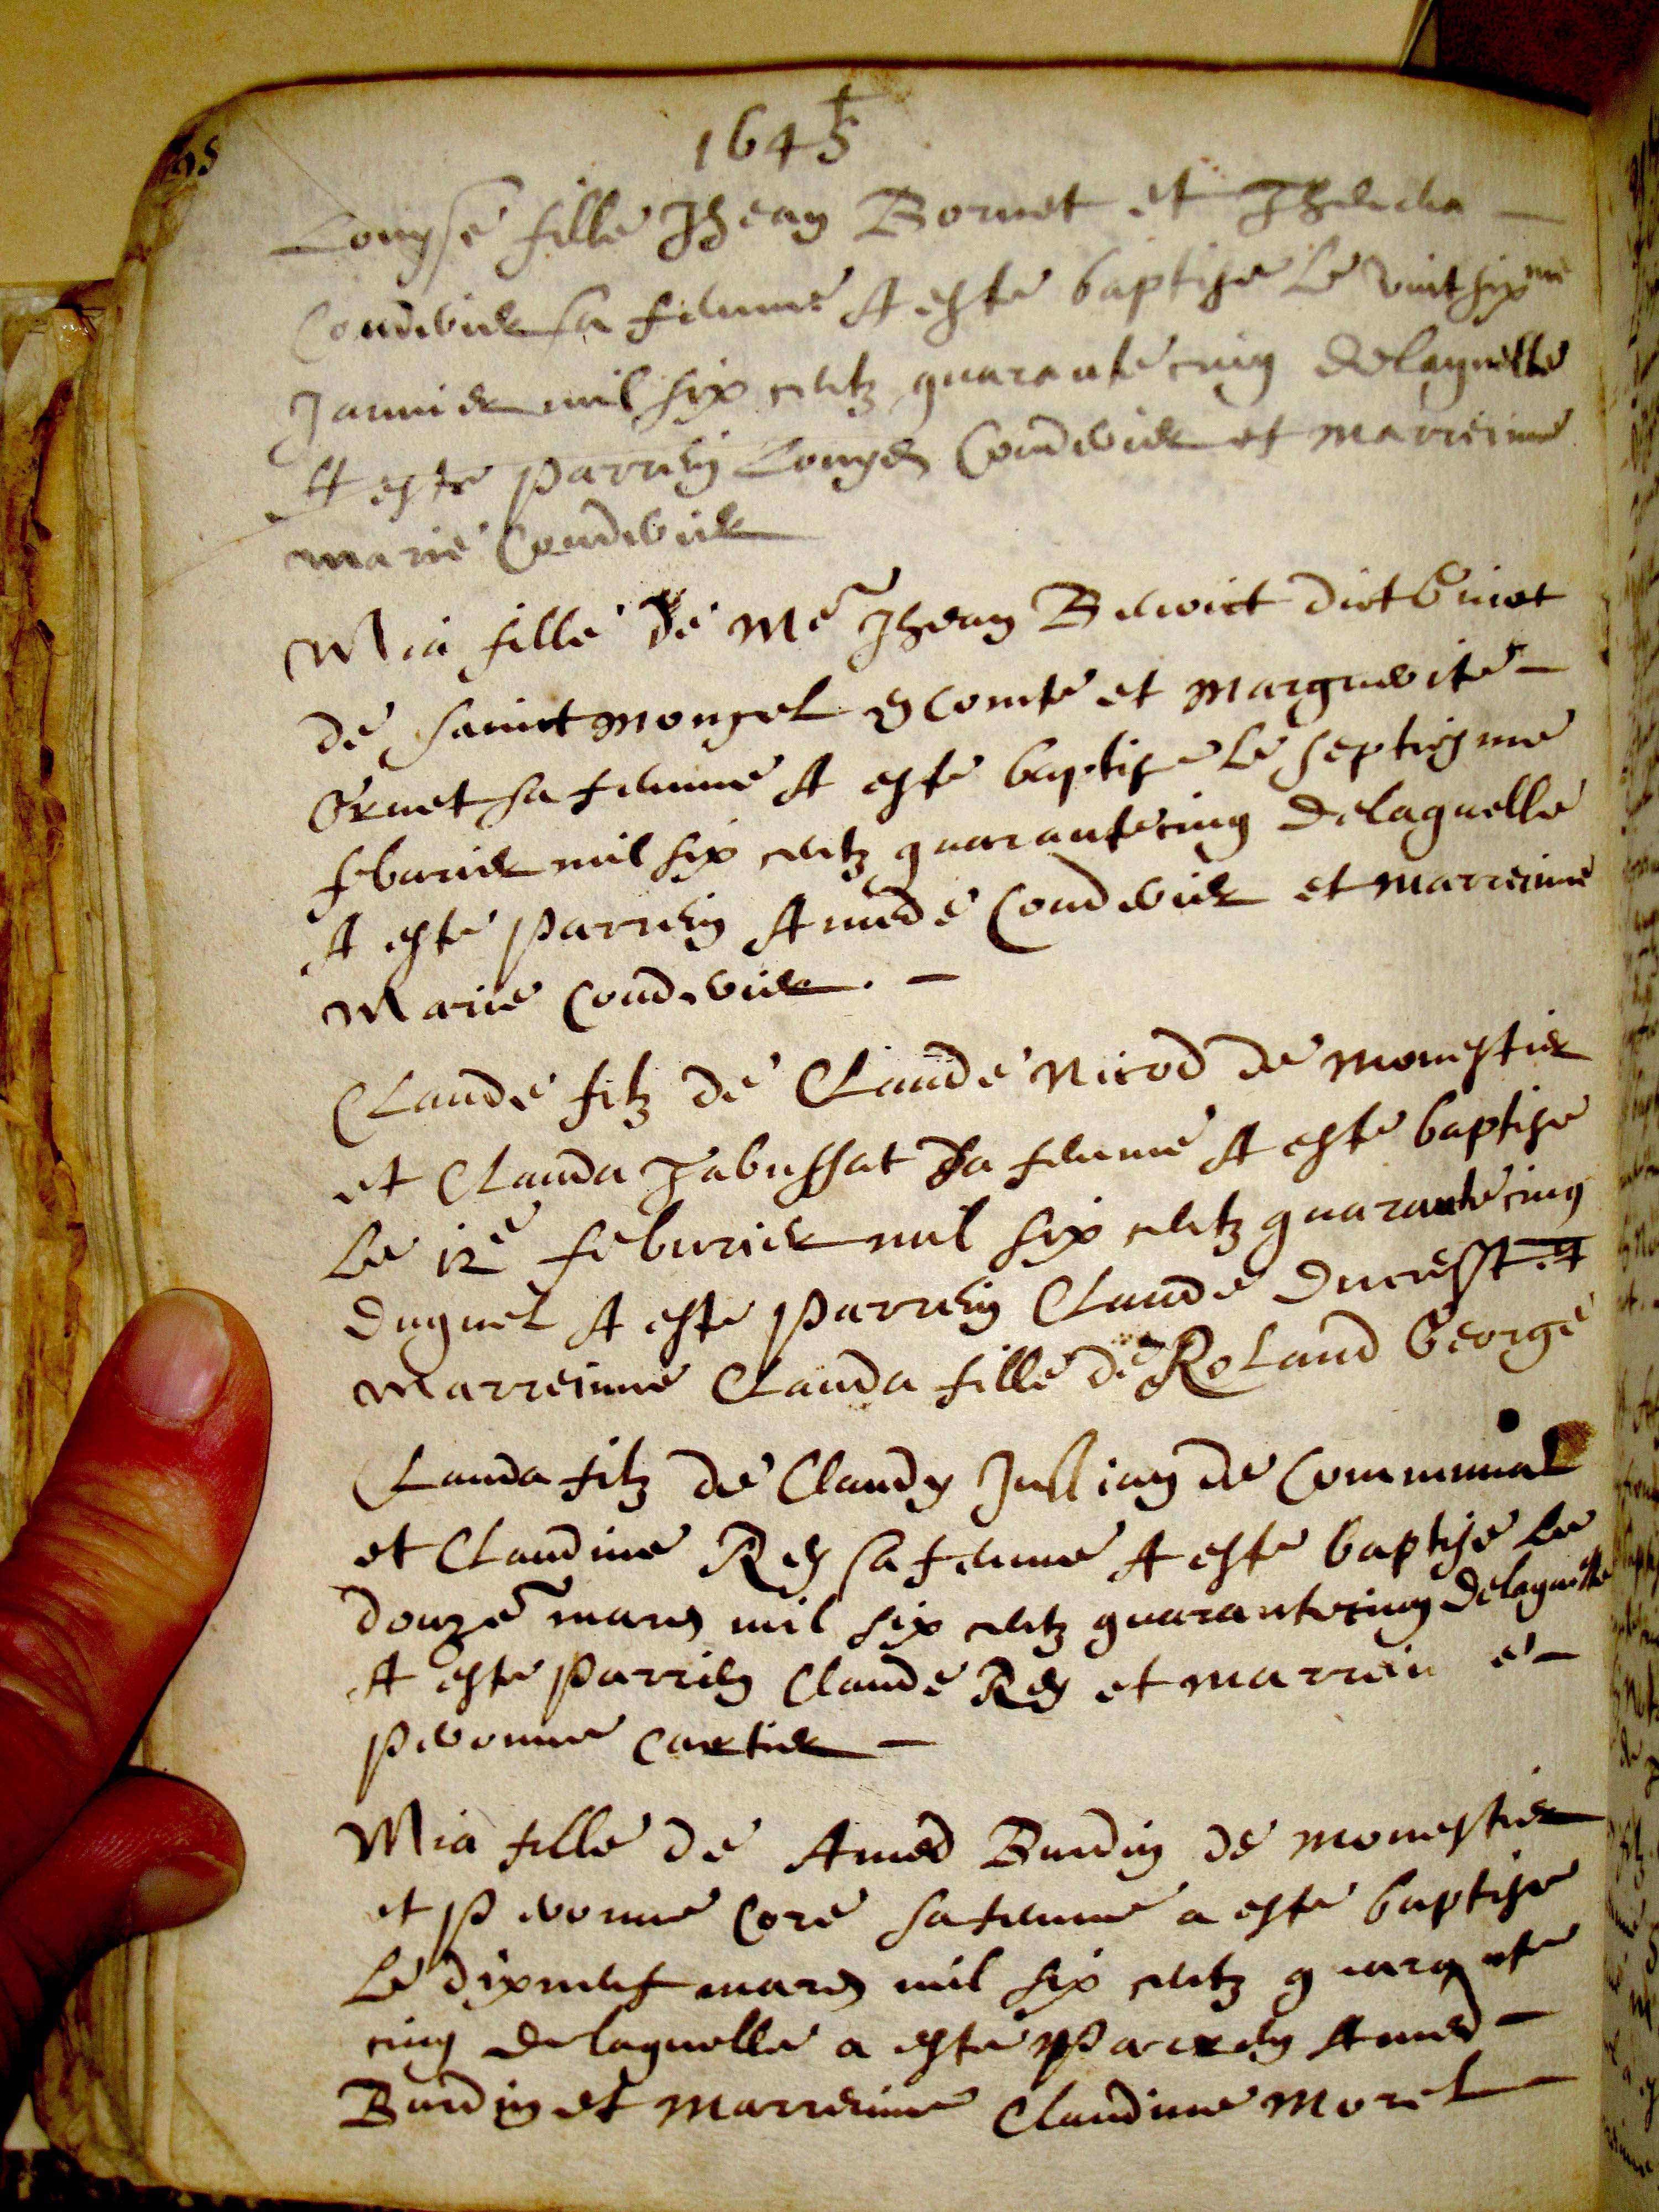 1645
Louyse fille Jhean Bornet et
Coudvrier sa femme A este baptise Le vintsixme
Janvier mil six centz quarante cinq Delaquelle
A este Parrein Louys Coudvrier et marreinne
marie Coudvrier
Mia fille de Me Jhean Benoict dict
de sainct Mongel Et marguerite
sa femme A este baptise Le septiesme
febvrier mil six centz quarante cinq Delaquelle
A este Parrein Amede Coudvrier et marreinne
Marie Coudvrier. -
Claude filz de Claude Nicod de Monestier
et Clauda Jabussat Sa femme A este baptise
Le 12e febvrier mil six centz quarante cinq
Duquel A este Parrein Claude Ducrest et
marreinne Clauda fille de RoLand George
Clauda filz de Claudy Julliany de Communal
et Claudine Rey sa femme A este baptise Le
douze mars mil six centz quarante cinq Delaquelle
A este Parrein Claude Rey et marreinne -
Pervonne Cartier -
Mia fille de Amed Burdin de monestier
et Pervonne Core sa femme a este baptise
Le dixneuf mars mil six centz quarante
cinq Delaquelle a este Parrein Amed -
Burdin et marreinne Claudine Morel -